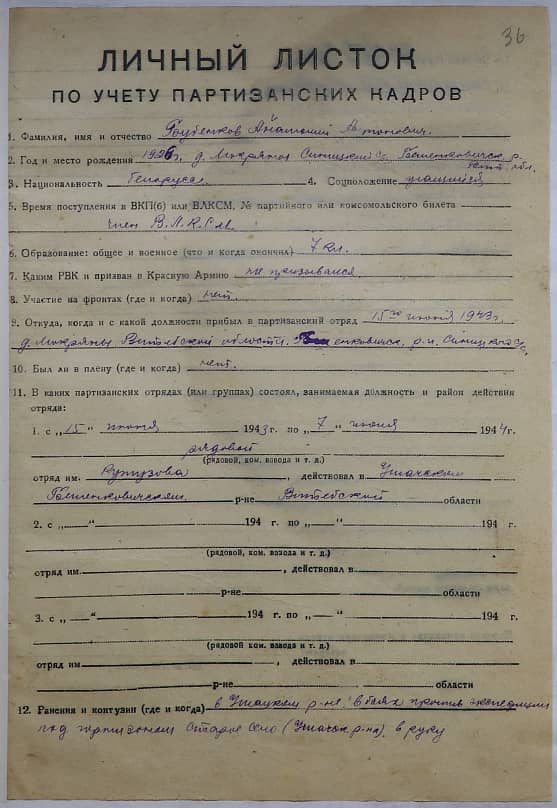 36
ЛИЧНЫЙ ЛИСТОК
ПО УЧЕТУ ПАРТИЗАНСКИХ КАДРОВ
1. Фамилия, имя и отчество Анатолий Антонович
2. Год и место рождения 1926 г. д. Мокряны Синицкий с/с Бешенковичск. р.
Витеб. обл.
3. Национальность Белорусс 4. Соцположение учащийся
5. Время поступления в ВКП(б) или ВЛКСМ, № партийного или комсомольского билета
член В.Л.К.С.М.
6. Образование: общее и военное (что и когда окончил) 7 кл.
7. Каким РВК и призван в Красную Армию не призывался
8. Участие на фронтах (где и когда) нет.
9. Откуда, когда и с какой должности прибыл в партизанский отряд 15го июня 1943г.
д. Мокряны Витебской области, Бешенковичск. р-н. Синицкого с/с.
10. Был ли в плену (где и когда) нет.
11. В каких партизанских отрядах (или группах) состоял, занимаемая должность и район действия
отряда:
1. с „15" июня 1943 г. по „7" июня 1944 г.
рядовой
(рядовой, ком. взвода и т. д.)
отряд им. Кутузова, действовал в Ушачском
Бешенковичском р-не Витебской области
2. с „—" 194 г. по „—" 194 г.
(рядовой, ком. взвода и т. д.)
отряд им. , действовал в
р-не области
3. с „—" 194 г. по „—" 194 г.
(рядовой, ком. взвода и т. д.)
отряд им. , действовал в
р-не области
12. Ранения и контузии (где и когда) в Ушацком р-не, в боях против экспедиции
под гарнизоном Старое Село (Ушачск. р-на), в руку